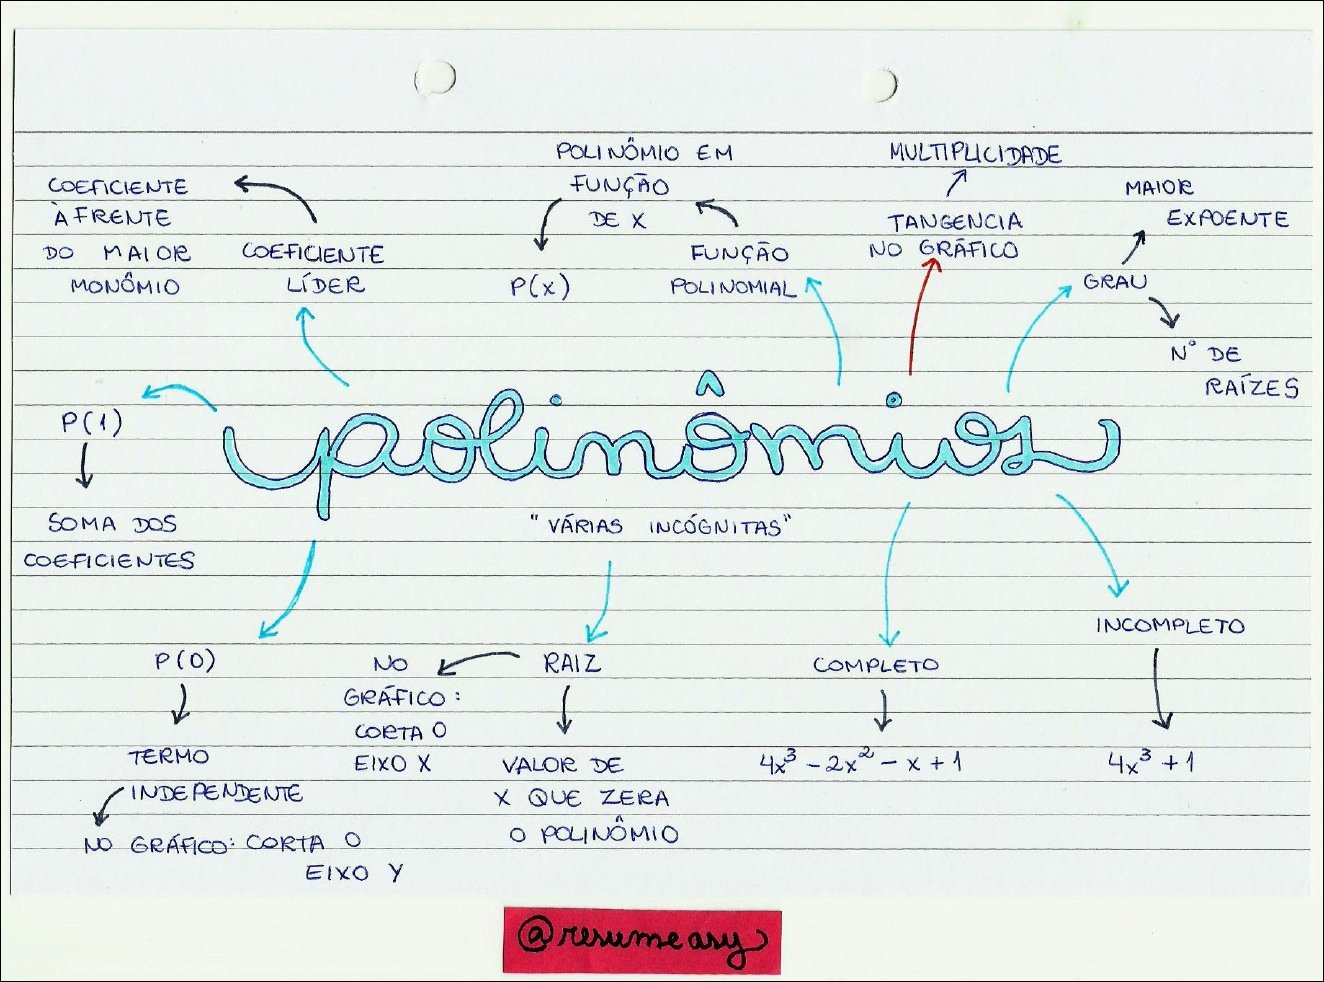 COEFICIENTE
À FRENTE
DO MAIOR
MONÔMIO
COEFICIENTE
LÍDER
POLINÔMIO EM
FUNÇÃO
DE X
P(x)
FUNÇÃO
POLINOMIAL
MULTIPLICIDADE
TANGENCIA
NO GRÁFICO
MAIOR
EXPOENTE
GRAU
N° DE
RAÍZES
P(1)
SOMA DOS
COEFICIENTES
polinômios
"VÁRIAS INCÓGNITAS"
P(0)
TERMO
INDEPENDENTE
NO GRÁFICO: CORTA O
EIXO Y
NO
GRÁFICO:
CORTA O
EIXO X
RAIZ
VALOR DE
X QUE ZERA
O POLINÔMIO
COMPLETO
4x³ - 2x² - x + 1
INCOMPLETO
4x³ + 1
@resumeasy